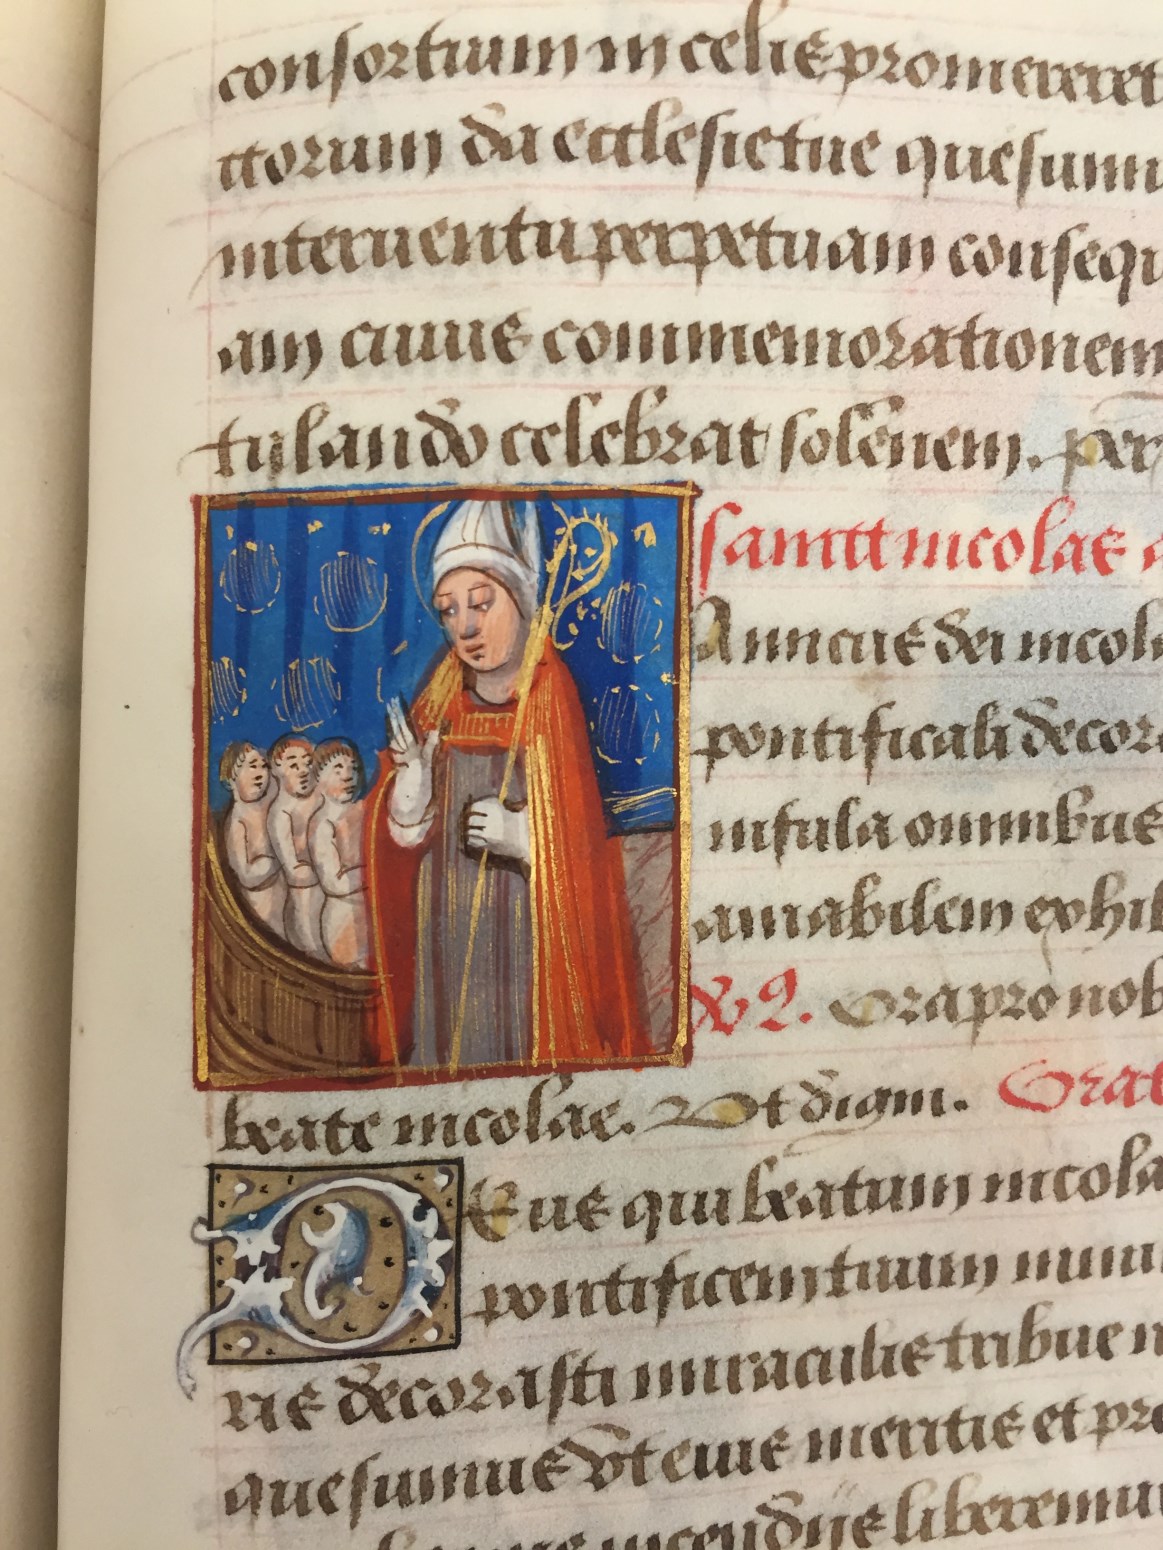 consortium in celis promereret
ctorum da ecclesie tue quesumu
interventu perpetuam consequ
am cuius commemorationem
tulando celebrat solẽnem. per
sancti nicolas
Amicus dei nicola
pontificali decora
infula omnibus
amabilem exhib
Ora pro nob
beate nicolae. Ut digni. Orat
Deus qui beatum nicola
pontificem tuum
ris decorasti miraculis tribue n
quesumus ut eius meritis et pre
incendijs liberemu